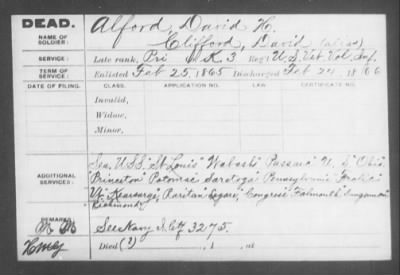 DEAD.
NAME OF SOLDIER:
Alford, David H.
Clifford, David (alias)
SERVICE:
Late rank, Pri K. 3 Reg't U.S. Vet. Vol. Inf.
TERM OF SERVICE:
Enlisted Feb 25, 1865 Discharged Feb 24, 1866
DATE OF FILING. CLASS. APPLICATION NO. LAW. CERTIFICATE NO.
Invalid,
Widow,
Minor,
ADDITIONAL SERVICES:
Sea, U.S.S. "St. Louis" Wabash" Passaic" "Ohio"
Princeton" Potomac" Saratoga" Pennsylvania"
"Kearsarge" Raritan" "Congress" Falmouth"
Richmond"
REMARKS:
See Navy 3275.
Died (?) , 1 , at